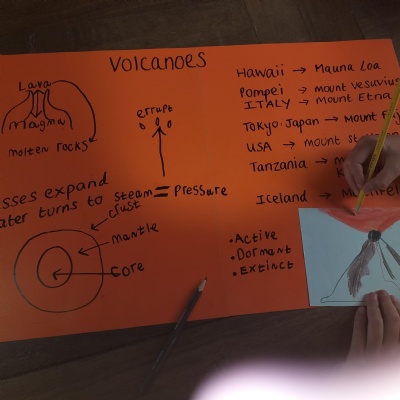 Volcanoes
Lava
Magma
molten rocks
errupt
sses expand
ater turns to steam = Pressure
crust
mantle
core
Hawaii → Mauna Loa
Pompei → mount vesuvius
ITALY → mount Etna
Tokyo. Japan → mount
USA → mount
Tanzania →
Iceland →
• Active
• Dormant
• Extinct